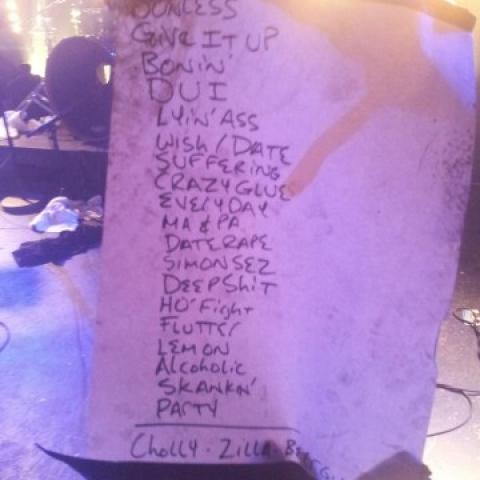 GIVE IT UP
BONIN'
DUI
LYIN' ASS
WISH / DATE
SUFFERING
CRAZY GLUE
EVERYDAY
MA & PA
DATE RAPE
SIMON SEZ
DEEP SHiT
HO' Fight
FLUTTER
LEMON
Alcoholic
SKANKIN'
PARTY
Cholly - Zilla -